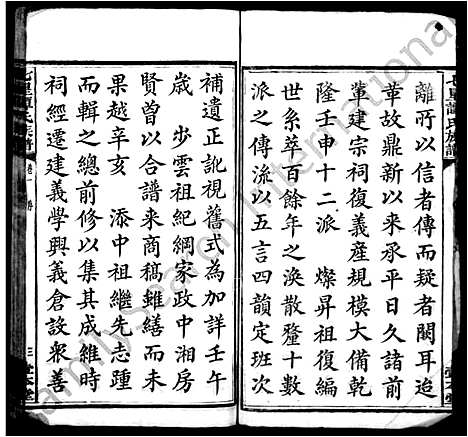 離所以信者傳而疑者闕耳迨
華故鼎新以來承平日久諸前
軰建宗祠復義産規模大備乾
隆壬申十二派 燦昇祖復編
世系萃百餘年之渙散釐十數
派之傳流以五言四韻定班次
補遺正訛視舊式為加詳壬午
歲 步雲祖紀綱家政中湘房
賢曾以合譜來商稿雖繕而未
果越辛亥 添中祖繼先志踵
而輯之總前修以集其成維時
祠經遷建義學興義倉設衆善
FamilySearch International